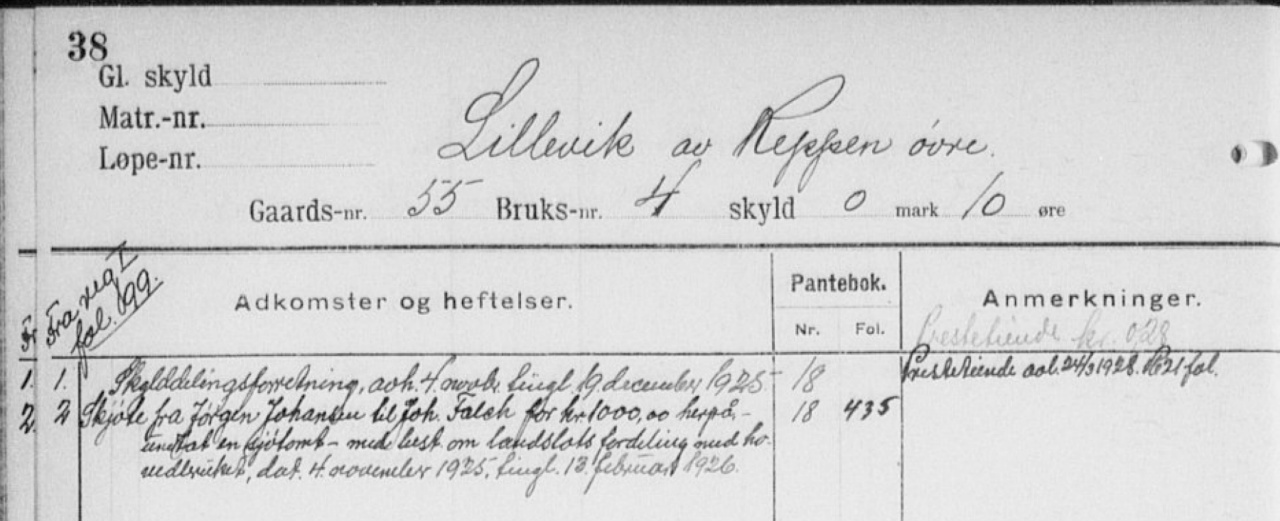 38
Gl. skyld
Matr.-nr.
Løpe-nr.
Lillevik av Reppen øvre.
Gaards-nr. 55 Bruks-nr. 4 skyld 0 mark 10 øre
Fra reg I
fol. 199.
Adkomster og heftelser.
Pantebok.
Nr. Fol.
Anmerkninger.
Prestetiende kr. 0,28
1. 1. Skylddelingsforretning, avh. 4. novbr. tingl. 19 december 1925 18
Prestetiende avl. 24/3 1928. Pb 21 fol.
2. 2 Skjøte fra Jørgen Johansen til Joh. Falch for kr. 1000,00 herpå, - 18 435
undtat en sjøtomt - med best. om landslots fordeling med ho-
vedbruket, dat. 4. november 1925, tingl. 13 februar 1926.